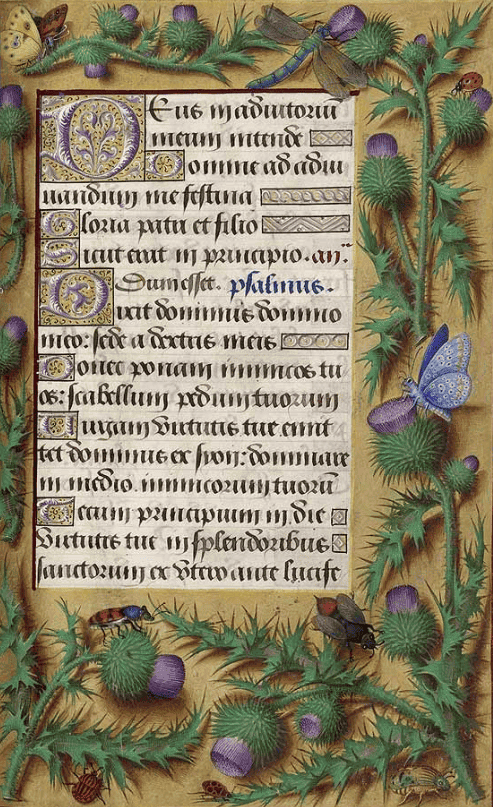 Eus in adiutoriū
meum intende
omine ad adiu
uandum me festina
loria patri et filio
Sicut erat in principio. an̄.
Dum esset. psalmus.
Dixit dominus domino
meo: sede a dextris meis
Donec ponam inimicos tu
os: scabellum pedum tuorum
uirgam virtutis tue emit
tet dominus ex syon: dominare
in medio inimicorum tuorū
Tecum principium in die
virtutis tue in splendoribus
sanctorum ex vtero ante lucife